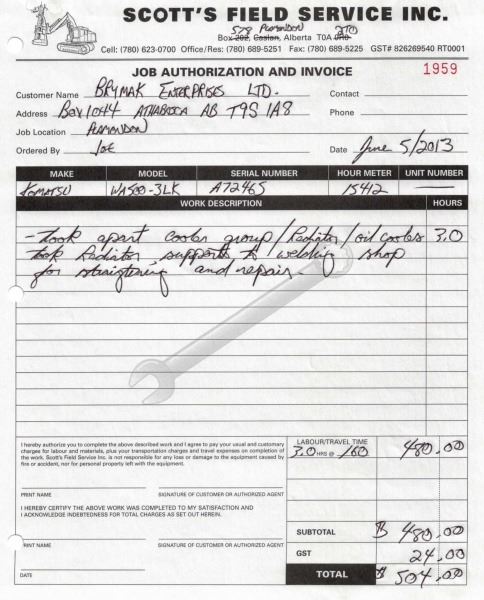 SCOTT'S FIELD SERVICE INC.
578 Plamondon 2T0
Box 292, Caslan, Alberta T0A 0R0
Cell: (780) 623-0700 Office/Res: (780) 689-5251 Fax: (780) 689-5225 GST# 826269540 RT0001
JOB AUTHORIZATION AND INVOICE 1959
Customer Name BRYMAK ENTERPRISES LTD. Contact
Address Box 1044 ATHABASCA AB T9S 1A8 Phone
Job Location PLAMONDON
Ordered By Joe Date June 5/2013
MAKE MODEL SERIAL NUMBER HOUR METER UNIT NUMBER
KOMATSU WA500-3LK A72465 15412
WORK DESCRIPTION HOURS
- took apart cooler group/Radiator/oil cooler 3.0
took Radiator supports to welding shop
for staigtening and repair.
I hereby authorize you to complete the above described work and I agree to pay your usual and customary
charges for labour and materials, plus your transportation charges and travel expenses on completion of
the work. Scott's Field Service Inc. is not responsible for any loss or damage to the equipment caused by
fire or accident, nor for personal property left with the equipment.
LABOUR/TRAVEL TIME
3.0 HRS @ 160 480.00
PRINT NAME SIGNATURE OF CUSTOMER OR AUTHORIZED AGENT
I HEREBY CERTIFY THE ABOVE WORK WAS COMPLETED TO MY SATISFACTION AND
I ACKNOWLEDGE INDEBTEDNESS FOR TOTAL CHARGES AS SET OUT HEREIN.
SUBTOTAL $ 480.00
PRINT NAME SIGNATURE OF CUSTOMER OR AUTHORIZED AGENT
GST 24.00
DATE
TOTAL $ 504.00